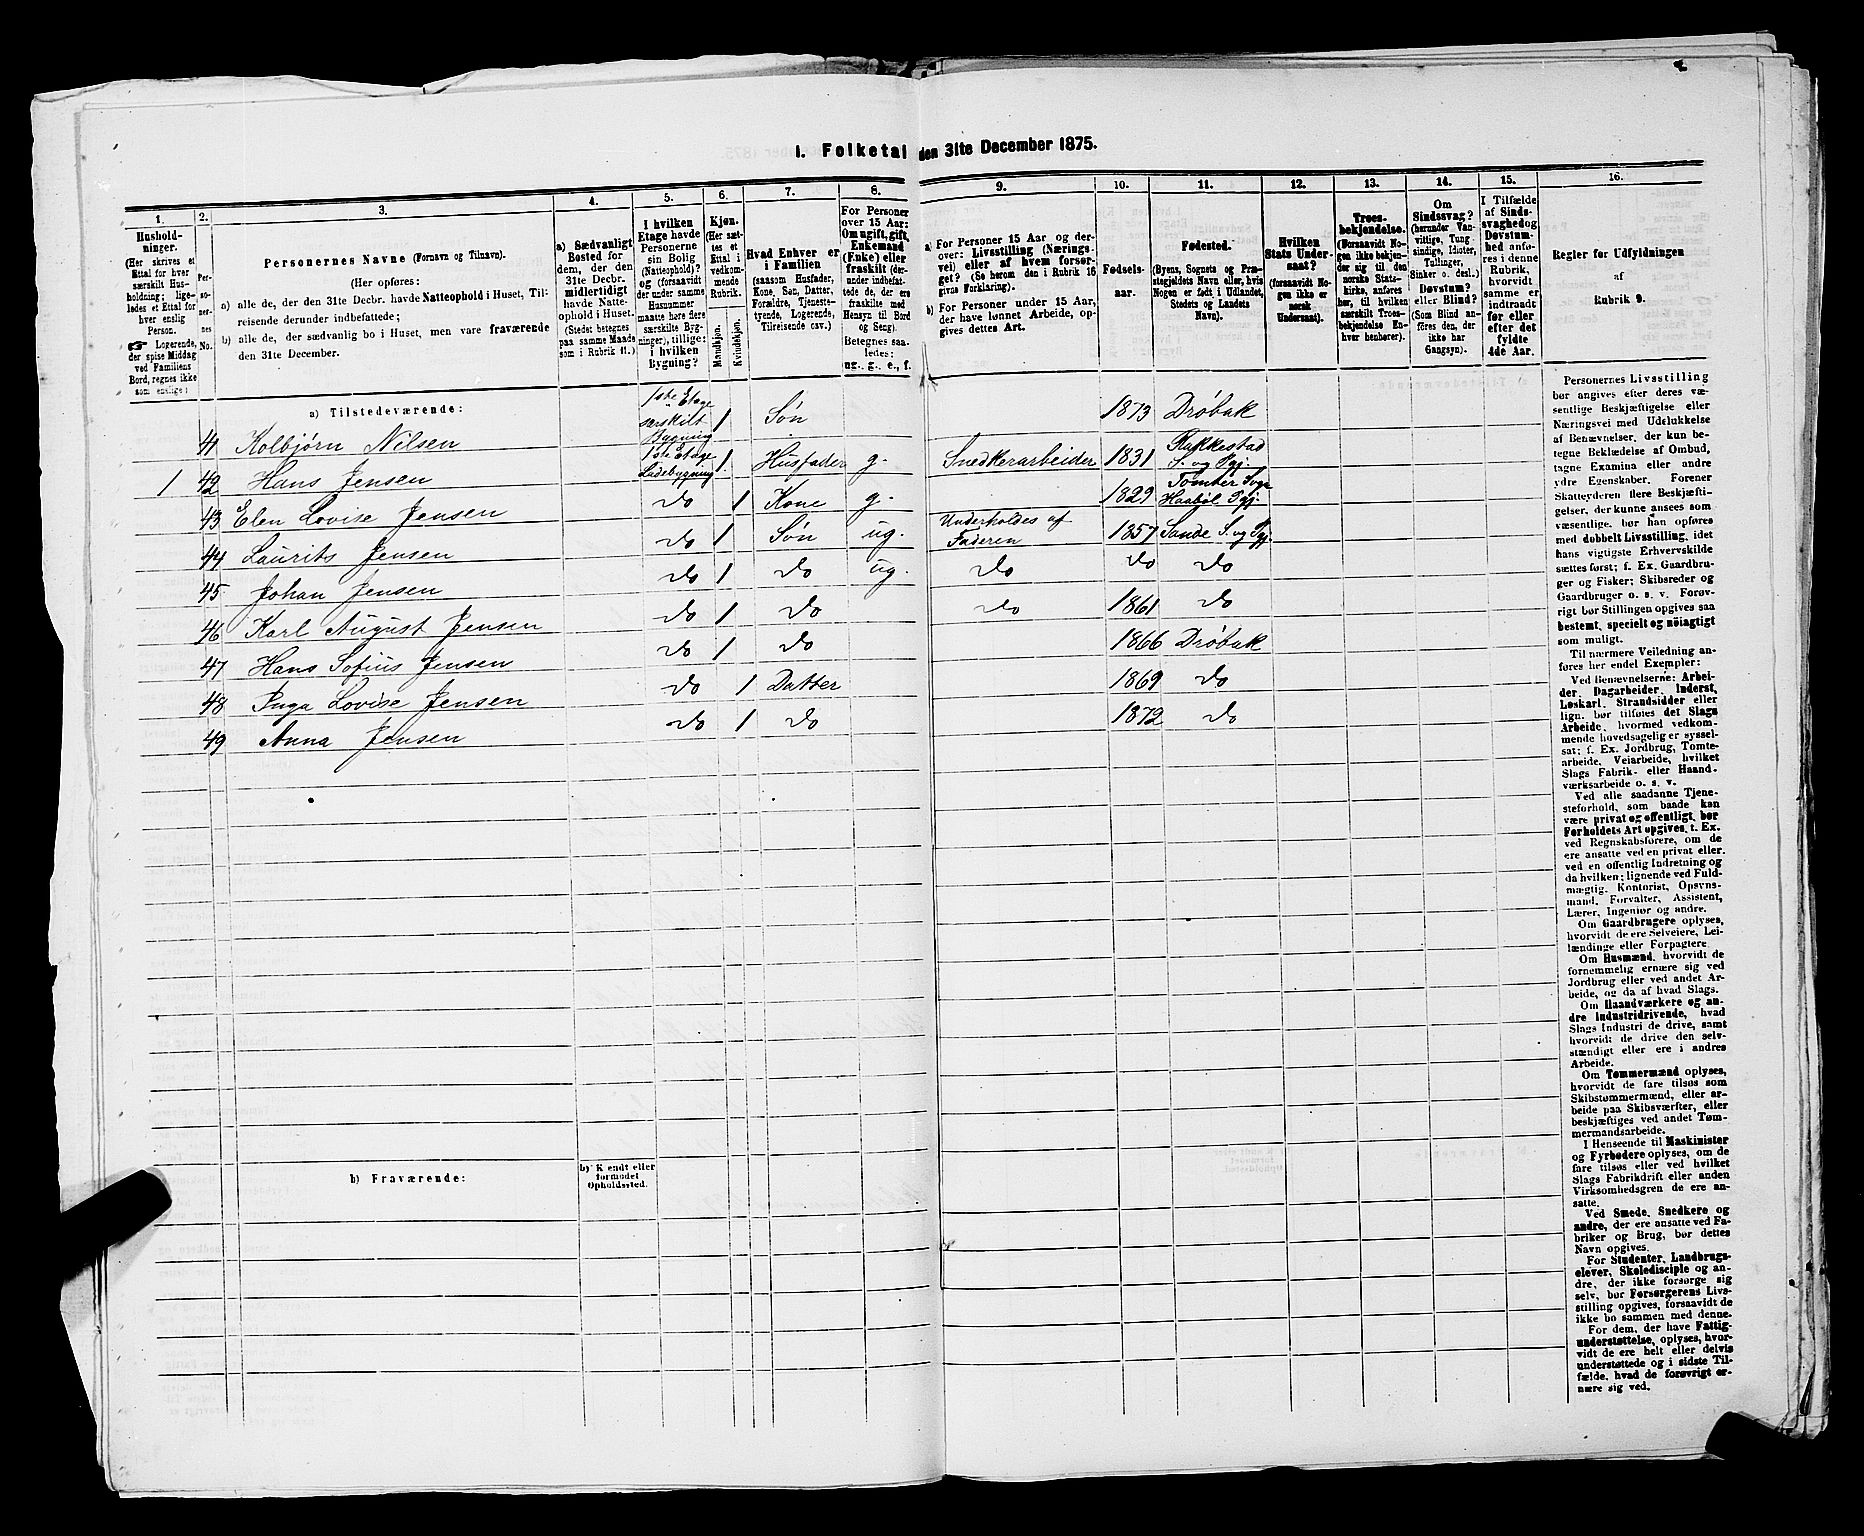 I. Folketal den 31te December 1875.
1. 2. 3. 4. 5. 6. 7. 8. 9. 10. 11. 12. 13. 14. 15. 16.
Hushold-
ninger.
(Her skrives et
Ettal for hver
særskilt Hus-
holdning; lige-
ledes et Ettal for
hver enslig
Person.
☞ Logerende,
der spise Middag
ved Familiens
Bord, regnes ikke
som enslige:
Per-
so-
ner-
nes
No.
Personernes Navne (Fornavn og Tilnavn).
(Her opføres:
a) alle de, der den 31te Decbr. havde Natteophold i Huset, Til-
reisende derunder indbefattede;
b) alle de, der sædvanlig bo i Huset, men vare fraværende
den 31te December.
a) Sædvanligt
Bosted for
dem, der den
31te Decbr.
midlertidigt
havde Natte-
ophold i Huset.
(Stedet betegnes
paa samme Maade
som i Rubrik 11.)
I hvilken
Etage havde
Personerne
sin Bolig
(Natteophold)?
og (forsaavidt
der under samme
Husnummer
maatte høre flere
særskilte Byg-
ninger), tillige:
i hvilken
Bygning?
Kjøn.
(Her sæt-
tes et
Ettal i
vedkom-
mende
Rubrik.
Mandkjøn.
Kvindekjøn.
Hvad Enhver er
i Familien
(saasom Husfader,
Kone, Søn, Datter,
Forældre, Tjeneste-
tyende, Logerende,
Tilreisende cav.)
For Personer
over 15 Aar:
Om ugift, gift,
Enkemand
(Enke) eller
fraskilt (der-
under indbefat-
tede de, der ere
fraskilte med
Hensyn til Bord
og Seng).
Betegnes saa-
ledes:
ug., g., e., f.
a) For Personer 15 Aar og der-
over: Livsstilling (Nærings-
vei) eller af hvem forsør-
get? (Se herom den i Rubrik 16
givne Forklaring).
b) For Personer under 15 Aar,
der have lønnet Arbeide, op-
gives dettes Art.
Fødsels-
aar.
Fødested.
(Byens, Sognets og Præ-
stegjeldets Navn eller, hvis
Nogen er født i Udlandet,
Stedets og Landets
Navn).
Hvilken
Stats Under-
saat?
(forsaavidt No-
gen ikke er
norsk
Undersaat).
Troes-
bekjendelse.
(Forsaavidt No-
gen ikke bekjen-
der sig til den
norske Stats-
kirke, anføres
her, til hvilken
særskilt Troes-
bekjendelse En-
hver henhører).
Om
Sindssvag?
(herunder Van-
vittige, Tung-
sindige, Idioter,
Tullinger,
Sinker o. desl.)
Døvstum?
eller Blind?
(Som Blind an-
føres den, der
ikke har
Gangsyn).
I Tilfælde
af Sinds-
svaghed og
Døvstum-
hed anfø-
res i denne
Rubrik,
hvorvidt
samme er
indtraadt
før eller
efter det
fyldte
4de Aar.
Regler for Udfyldningen
af
Rubrik 9.
a) Tilstedeværende:
41 Kolbjørn Nilsen 1ste Etage særskilt Bygning 1 Søn 1873 Drøbak
1 42 Hans Jensen 1ste Etage Sidebygning 1. Husfader g. Snedkerarbeider 1831 Rakkestad S. og Pgj.
43 Elen Lovise Jensen do 1 Kone g. 1829 Tomter Sogn Haabøl Pgj
44 Laurits Jensen do 1 Søn ug. Underholdes af Faderen 1857 Sande S. og Pgj.
45 Johan Jensen do 1 do ug. do do do
46 Karl August Jensen do 1 do do 1861 do
47 Hans Sofius Jensen do 1 do 1866 Drøbak
48 Inga Lovise Jensen do 1 Datter 1869 do
49 Anna Jensen do 1 do 1872 do
b) Fraværende:
formodet
Opholdssted.
Personernes Livsstilling
bør angives efter deres væ-
sentlige Beskjæftigelse eller
Næringsvei med Udelukkelse
af Benævnelser, der kun be-
tegne Beklædelse af Ombud,
tagne Examina eller andre
ydre Egenskaber. Forener
Skatteyderen flere Beskjæfti-
gelser, der kunne ansees som
væsentlige, bør han opføres
med dobbelt Livsstilling, idet
hans vigtigste Erhvervskilde
sættes først; f. Ex. Gaardbru-
ger og Fisker; Skibsreder og
Gaardbruger o. s. v. Forøv-
rigt bør Stillingen opgives saa
bestemt, specielt og nøiagtigt
som muligt.
Til nærmere Veiledning an-
føres her endel Exempler:
Ved Benævnelserne: Arbei-
der, Dagarbeider, Inderst,
Løskarl, Strandsidder eller
lign. bør tilføies det Slags
Arbeide, hvormed vedkom-
mende hovedsagelig er syssel-
sat; f. Ex. Jordbrug, Tomte-
arbeide, Veiarbeide, hvilket
Slags Fabrik- eller Haand-
værksarbeide o. s. v.
Ved alle saadanne Tjene-
steforhold, som baade kan
være privat og offentligt, bør
Forholdets Art opgives, t. Ex.
ved Regnskabsførere, om de
ere ansatte ved en privat eller
ved en offentlig Indretning og
da hvilken; lignende ved Fuld-
mægtig, Kontorist, Opsyns-
mand, Forvalter, Assistent,
Lærer, Ingeniør og andre.
Om Gaardbrugere oplyses,
hvorvidt de ere Selveiere, Lei-
lændinge eller Forpagtere.
Om Husmænd, hvorvidt de
fornemmelig ernære sig ved
Jordbrug eller ved andet Ar-
beide, og da af hvad Slags.
Om Haandværkere og an-
dre Industridrivende, hvad
Slags Industri de drive, samt
hvorvidt de drive den selv-
stændigt eller ere i andres
Arbeide.
Om Tømmermænd oplyses,
hvorvidt de fare tilsøs som
Skibstømmermænd, eller ar-
beide paa Skibsværfter, eller
beskjæftiges ved andet Tøm-
mermandsarbeide.
I Henseende til Maskinister
og Fyrbødere oplyses, om de
fare tilsøs eller ved hvilket
Slags Fabrikdrift eller anden
Virksomhedsgren de ere an-
satte.
Ved Smede, Snedkere og
andre, der ere ansatte ved Fa-
briker og Brug, bør dettes
Navn opgives.
For Studenter, Landbrugs-
elever, Skoledisciple og an-
dre, der ikke forsørge sig
selv, bør Forsørgerens Livs-
stilling opgives, forsaavidt de
ikke bo sammen med denne.
For dem, der have Fattig-
understøttelse, oplyses, hvor-
vidt de ere helt eller delvis
understøttede og i sidste Til-
fælde, hvad de forøvrigt er-
nære sig ved.